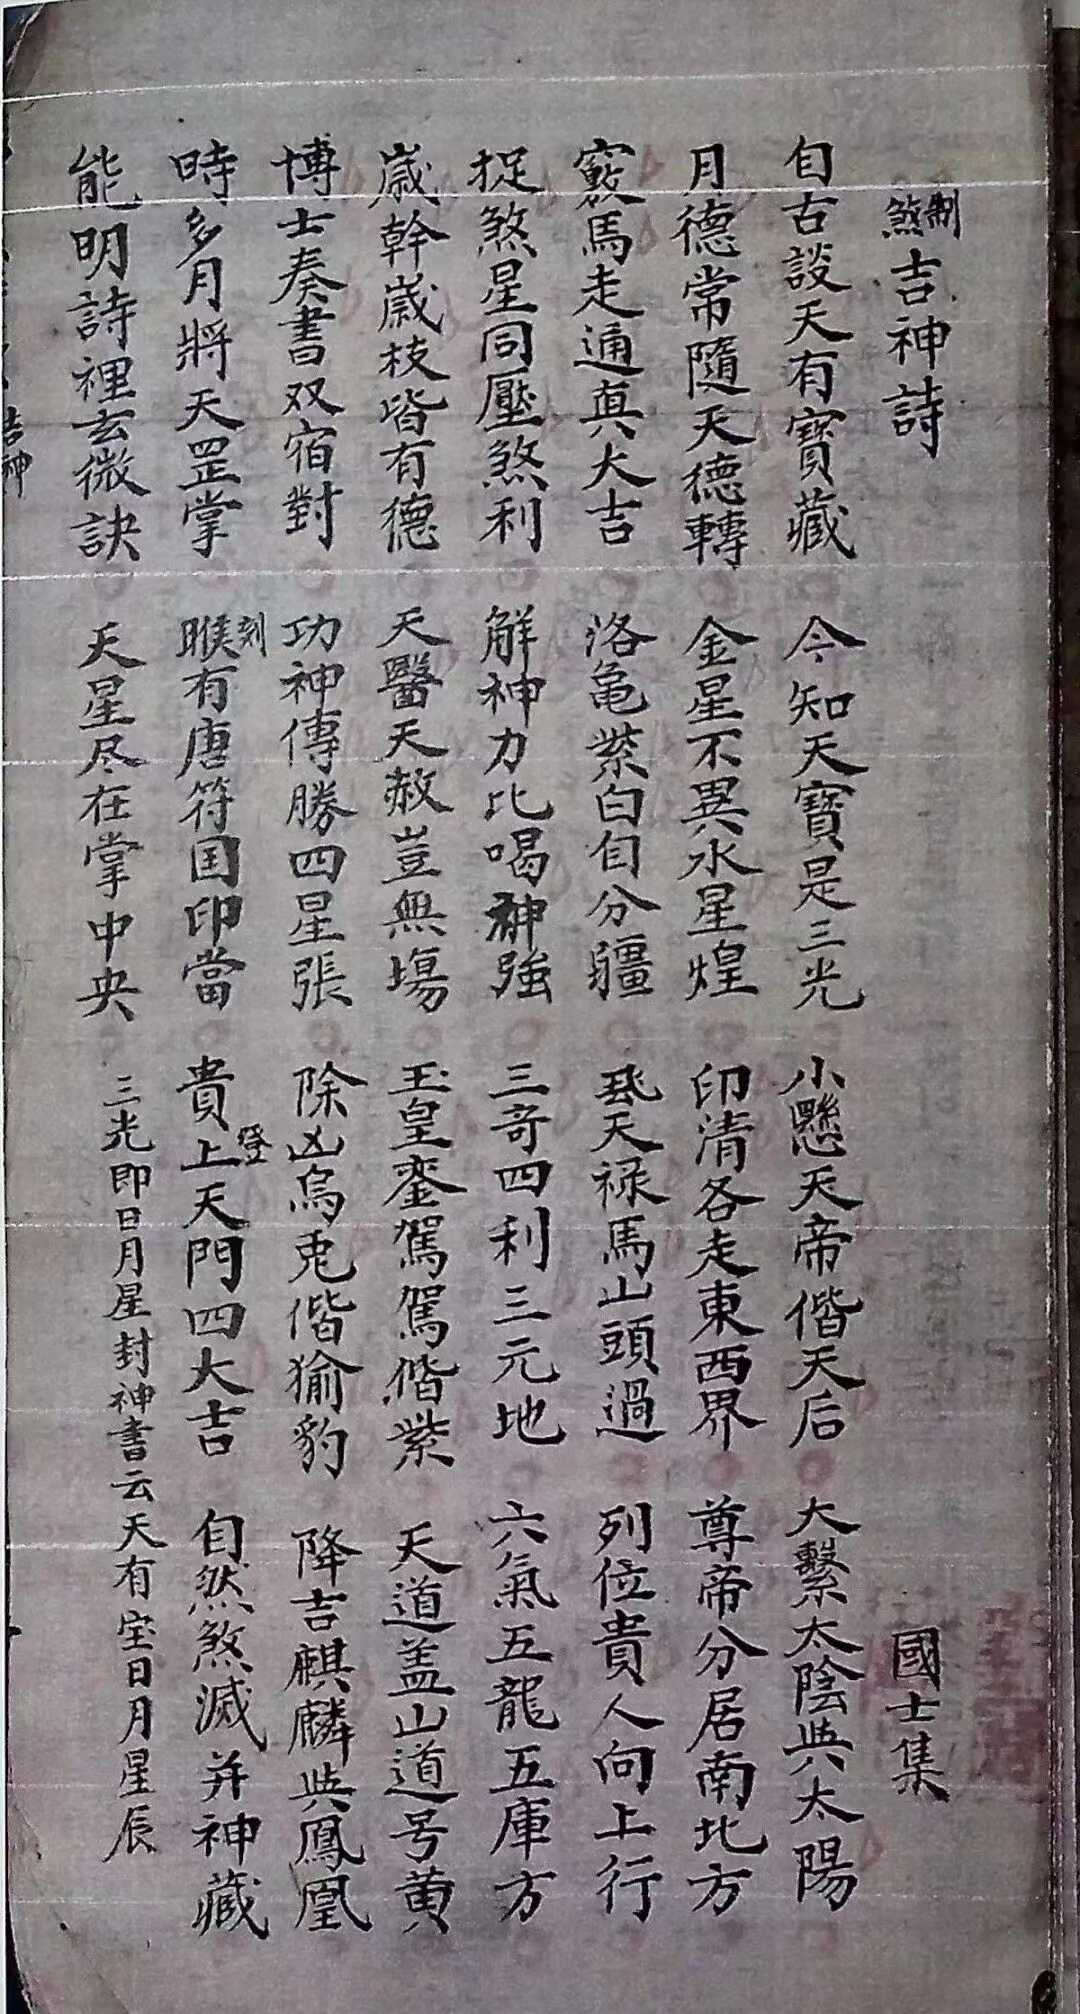 制煞吉神詩 國士集
自古談天有寶藏 今知天寶是三光 小懸天帝偕天后 大繫太陰與太陽
月德常隨天德轉 金星不異水星煌 印清各走東西界 尊帝分居南北方
竅馬走通真大吉 洛亀紫白自分疆 飛天禄馬山頭過 列位貴人向上行
捉煞星同壓煞利 解神力比喝神強 三奇四利三元地 六氣五龍五庫方
歲幹歲枝皆有德 天醫天赦豈無塲 玉皇鑾駕駕偕紫 天道盖山道号黄
博士奏書双宿對 功神傳勝四星張 除凶烏兎偕貐豹 降吉麒麟與鳳凰
時多月將天罡掌 刻睺有唐符国印當 貴登上天門四大吉 自然煞滅并神藏
能明詩裡玄微訣 天星尽在掌中央 三光即日月星封神書云天有宝日月星辰
吉神